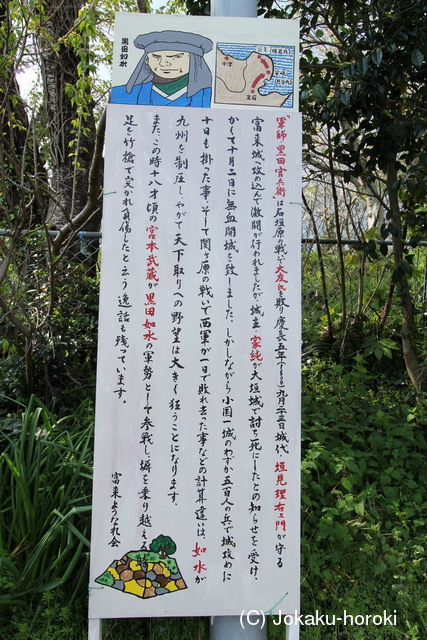 黒田如水
「軍師 黒田官兵衛」は石垣原の戦いで大友氏を破り慶長五年(1600)九月二十三日城代、垣見理右エ門が守る
富来城へ攻め込んで激闘が行われましたが城主、家純が大垣城で討ち死にしたとの知らせを受け、
かくて十月二日に無血開城を致しました。しかしながら小国一城のわずか五百人の兵で城攻めに
十日も掛った事、そして関ヶ原の戦いで西軍が一日で敗れ去った事などの計算違いは、如水が
九州を制圧し、やがて天下取りへの野望は大きく狂うことになります。
また、この時十八才頃の宮本武蔵が黒田如水の軍勢として参戦し、塀を乗り越える時
足を竹槍で突かれ負傷したと云う逸話も残っています。
富来ようなれ会
(C) Jokaku-horoki